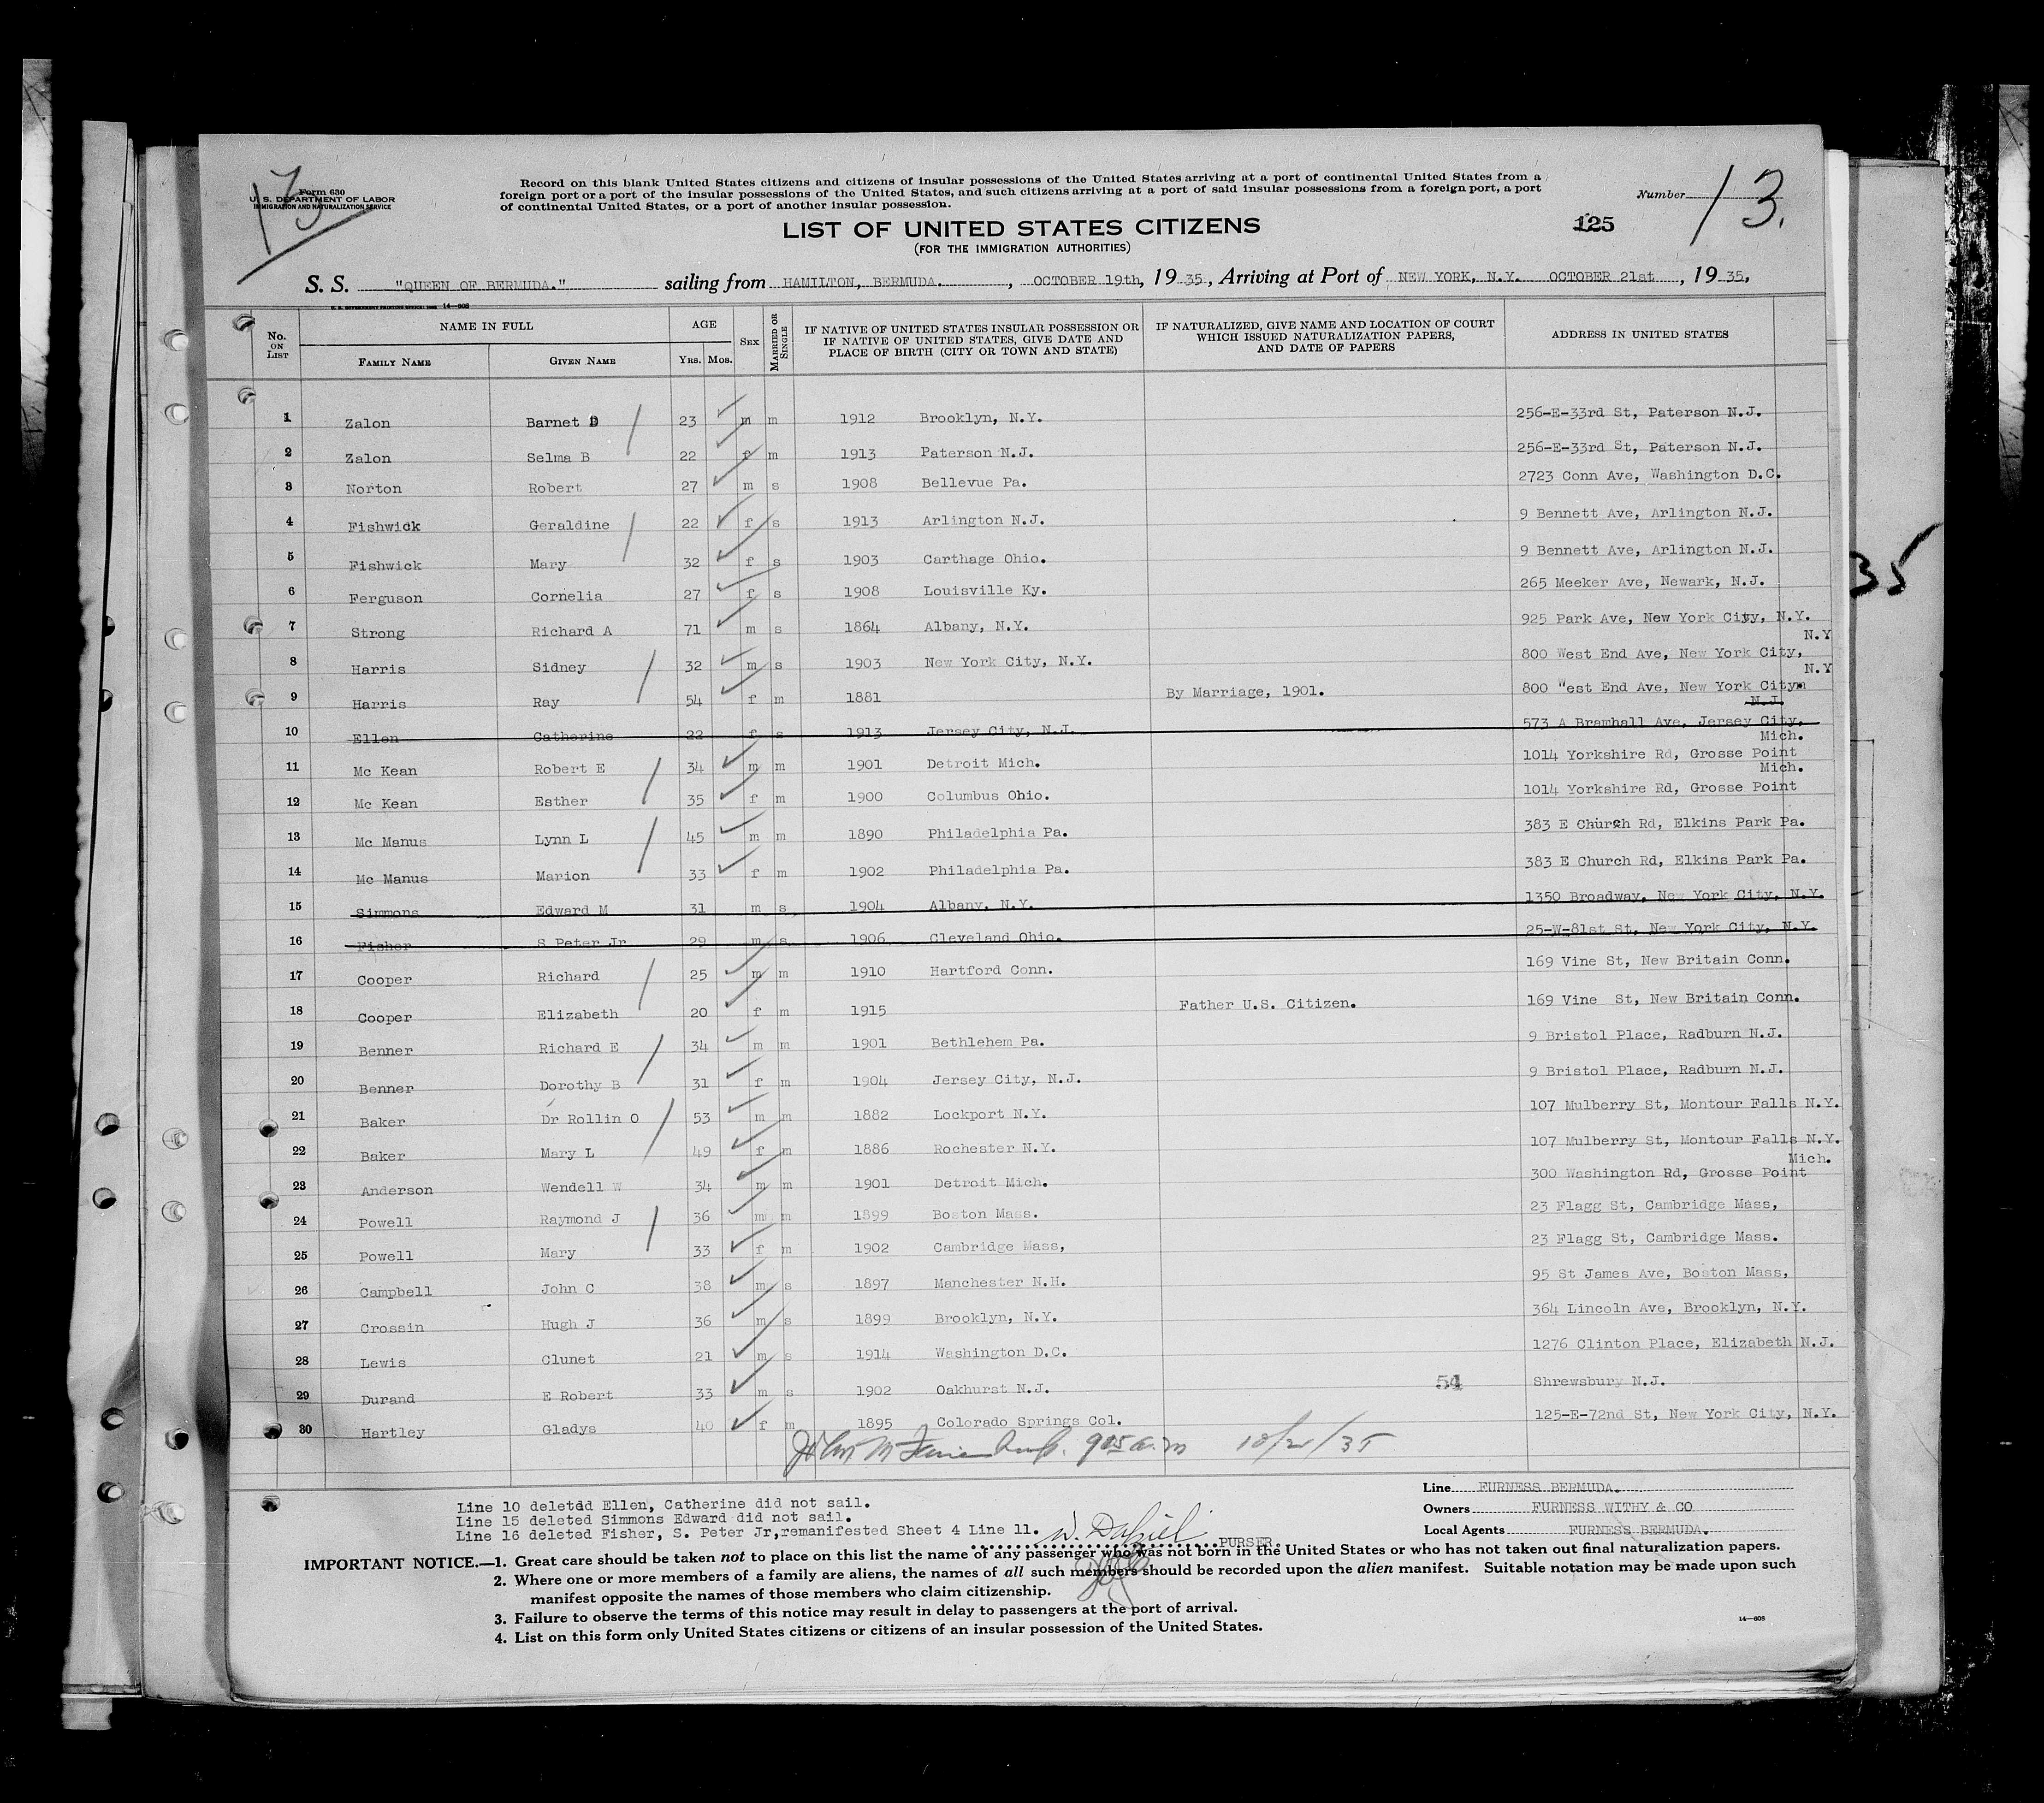 13
Form 630
U. S. DEPARTMENT OF LABOR
IMMIGRATION AND NATURALIZATION SERVICE
Record on this blank United States citizens and citizens of insular possessions of the United States arriving at a port of continental United States from a
foreign port or a port of the insular possessions of the United States, and such citizens arriving at a port of said insular possessions from a foreign port, a port
of continental United States, or a port of another insular possession.
Number 13.
LIST OF UNITED STATES CITIZENS
125
(FOR THE IMMIGRATION AUTHORITIES)
S. S. "QUEEN OF BERMUDA." sailing from HAMILTON, BERMUDA. , OCTOBER 19th, 1935, Arriving at Port of NEW YORK, N.Y. OCTOBER 21st , 1935,
14—608
No. ON LIST NAME IN FULL FAMILY NAME GIVEN NAME AGE YRS. MOS. SEX MARRIED OR SINGLE IF NATIVE OF UNITED STATES INSULAR POSSESSION OR IF NATIVE OF UNITED STATES, GIVE DATE AND PLACE OF BIRTH (CITY OR TOWN AND STATE) IF NATURALIZED, GIVE NAME AND LOCATION OF COURT WHICH ISSUED NATURALIZATION PAPERS, AND DATE OF PAPERS ADDRESS IN UNITED STATES
1 Zalon Barnet D 23 m m 1912 Brooklyn, N.Y. 256-E-33rd St, Paterson N.J.
2 Zalon Selma B 22 f m 1913 Paterson N.J. 256-E-33rd St, Paterson N.J.
3 Norton Robert 27 m s 1908 Bellevue Pa. 2723 Conn Ave, Washington D.C.
4 Fishwick Geraldine 22 f s 1913 Arlington N.J. 9 Bennett Ave, Arlington N.J.
5 Fishwick Mary 32 f s 1903 Carthage Ohio. 9 Bennett Ave, Arlington N.J.
6 Ferguson Cornelia 27 f s 1908 Louisville Ky. 265 Meeker Ave, Newark, N.J.
7 Strong Richard A 71 m s 1864 Albany, N.Y. 925 Park Ave, New York City, N.Y.
8 Harris Sidney 32 m s 1903 New York City, N.Y. 800 West End Ave, New York City, N.Y
9 Harris Ray 54 f m 1881 By Marriage, 1901. 800 "est End Ave, New York City. N.Y
10 Ellen Catherine 22 f s 1913 Jersey City, N.J. 573 A Bramhall Ave, Jersey City, N.J.
11 Mc Kean Robert E 34 m m 1901 Detroit Mich. 1014 Yorkshire Rd, Grosse Point Mich.
12 Mc Kean Esther 35 f m 1900 Columbus Ohio. 1014 Yorkshire Rd, Grosse Point Mich.
13 Mc Manus Lynn L 45 m m 1890 Philadelphia Pa. 383 E Church Rd, Elkins Park Pa.
14 Mc Manus Marion 33 f m 1902 Philadelphia Pa. 383 E Church Rd, Elkins Park Pa.
15 Simmons Edward M 31 m s 1904 Albany, N.Y. 1350 Broadway, New York City, N.Y.
16 Fisher S Peter Jr 29 m s 1906 Cleveland Ohio. 25-W-81st St, New York City, N.Y.
17 Cooper Richard 25 m m 1910 Hartford Conn. 169 Vine St, New Britain Conn.
18 Cooper Elizabeth 20 f m 1915 Father U.S. Citizen. 169 Vine St, New Britain Conn.
19 Benner Richard E 34 m m 1901 Bethlehem Pa. 9 Bristol Place, Radburn N.J.
20 Benner Dorothy B 31 f m 1904 Jersey City, N.J. 9 Bristol Place, Radburn N.J.
21 Baker Dr Rollin O 53 m m 1882 Lockport N.Y. 107 Mulberry St, Montour Falls N.Y.
22 Baker Mary L 49 f m 1886 Rochester N.Y. 107 Mulberry St, Montour Falls N.Y.
23 Anderson Wendell W 34 m m 1901 Detroit Mich. 300 Washington Rd, Grosse Point Mich.
24 Powell Raymond J 36 m m 1899 Boston Mass. 23 Flagg St, Cambridge Mass,
25 Powell Mary 33 f m 1902 Cambridge Mass, 23 Flagg St, Cambridge Mass.
26 Campbell John C 38 m s 1897 Manchester N.H. 95 St James Ave, Boston Mass,
27 Crossin Hugh J 36 m s 1899 Brooklyn, N.Y. 364 Lincoln Ave, Brooklyn, N.Y.
28 Lewis Clunet 21 m s 1914 Washington D.C. 1276 Clinton Place, Elizabeth N.J.
29 Durand E Robert 33 m s 1902 Oakhurst N.J. 54 Shrewsbury N.J.
30 Hartley Gladys 40 f m 1895 Colorado Springs Col. 125-E-72nd St, New York City, N.Y.
915 a.m 10/21/35
35
Line 10 deletdd Ellen, Catherine did not sail.
Line 15 deleted Simmons Edward did not sail.
Line 16 deleted Fisher, S. Peter Jr,remanifested Sheet 4 Line 11.
PURSER.
Line FURNESS BERMUDA.
Owners FURNESS WITHY & CO
Local Agents FURNESS BERMUDA.
IMPORTANT NOTICE.—1. Great care should be taken not to place on this list the name of any passenger who was not born in the United States or who has not taken out final naturalization papers.
2. Where one or more members of a family are aliens, the names of all such members should be recorded upon the alien manifest. Suitable notation may be made upon such
manifest opposite the names of those members who claim citizenship.
3. Failure to observe the terms of this notice may result in delay to passengers at the port of arrival.
4. List on this form only United States citizens or citizens of an insular possession of the United States.
14—608